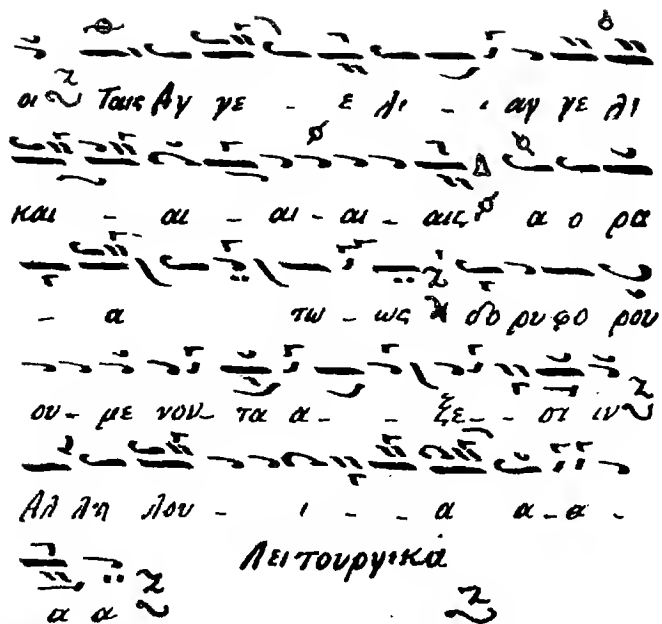 οι Ταις Αγ γε - ε λι - ι αγ γε λι
και - αι - αι - αι - αις α ο ρα
- α τω - ως δο ρυ φο ρού
ου - με νον - τα α - - ξε - - σι ιν
Αλ λη λου - ι - - α α - α -
α α Λειτουργικά